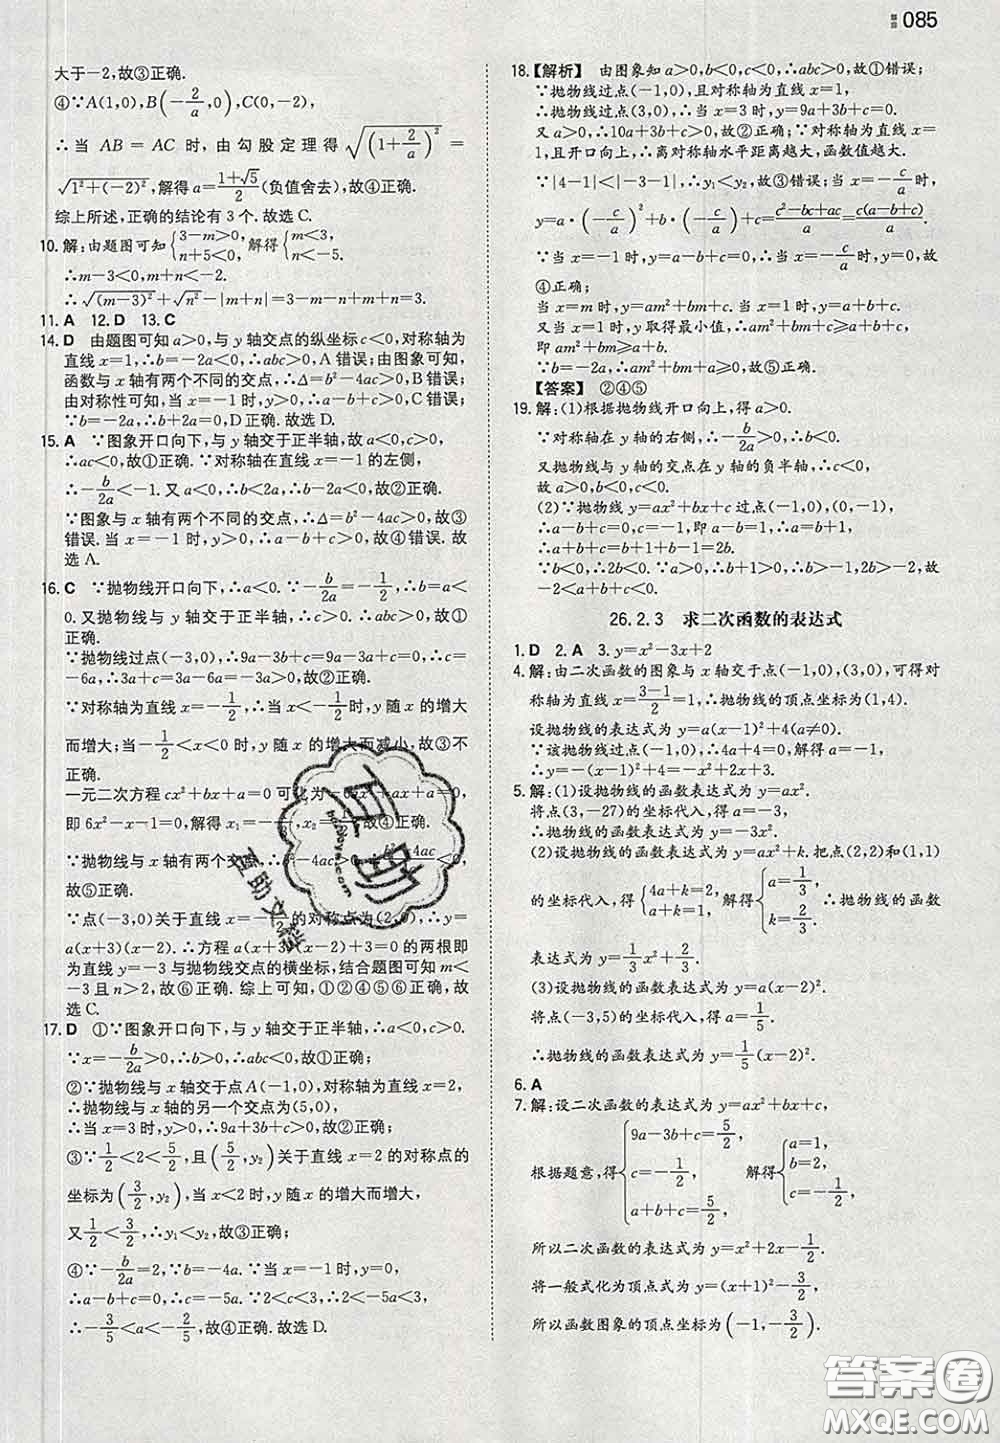 085
大于－2,故③正确.
④∵A(1,0),B(－2/a,0),C(0,－2),
∴当 AB ＝ AC 时,由勾股定理得√((1＋2/a)²)＝
√(1²＋(－2)²),解得a＝(1＋√5)/2(负值舍去),故④正确.
综上所述,正确的结论有 3 个.故选 C.
10. 解:由题图可知{3－m＞0, n＋5＜0, 解得{m＜3, n＜－5.
∴m－3＜0,m＋n＜－2.
∴√((m－3)²)＋√(n²)－|m＋n|＝3－m－n＋m＋n＝3.
11. A 12. D 13. C
14. D 由题图可知a＞0,与 y 轴交点的纵坐标 c＜0,对称轴为
直线 x＝1,∴b＝－2a＜0,∴abc＞0,A 错误;由图象可知,
函数与 x 轴有两个不同的交点,∴Δ＝b²－4ac＞0,B 错误;
由对称性可知,当 x＝－1 时,y＞0,∴a－b＋c＞0,C 错误;
∵b＝－2a,∴b＋2a＝0,D 正确.故选 D.
15. A ∵图象开口向下,与 y 轴交于正半轴,故 a＜0,c＞0,
∴ac＜0,故①正确.∵对称轴在直线 x＝－1 的左侧,
∴－b/2a＜－1.又 a＜0,∴b＜2a＜0,故②正确.
∵图象与 x 轴有两个不同的交点,∴Δ＝b²－4ac＞0,故③
错误.当 x＝－1 时,y＞0,∴a－b＋c＞0,故④错误.故
选 A.
16. C ∵抛物线开口向下,∴a＜0.∵－b/2a＝－1/2,∴b＝a＜
0.又抛物线与 y 轴交于正半轴,∴c＞0.∴abc＞0,故①
正确.
∵抛物线过点(－3,0),∴9a－3b＋c＝0,∴c＝
－6a,∴3a＋c＝3a－6a＝－3a＞0,故②正确.
∵对称轴为直线 x＝－1/2,∴当 x＜－1/2时,y 随 x 的增大
而增大;当－1/2＜x＜0 时,y 随 x 的增大而减小,故③不
正确.
一元二次方程 cx²＋bx＋a＝0 可化为－6ax²＋ax＋a＝0,
即 6x²－x－1＝0,解得 x₁＝－1/3,x₂＝1/2,故④正确.
∵抛物线与 x 轴有两个交点,∴b²－4ac＞0,∴(b²－4ac)/4a＜0,
故⑤正确.
∵点(－3,0)关于直线 x＝－1/2的对称点为(2,0),∴y＝
a(x＋3)(x－2).∴方程 a(x＋3)(x－2)＝－3 的两根即
为直线 y＝－3 与抛物线交点的横坐标,结合题图可知 m＜
－3 且 n＞2,故⑥正确.综上可知,①②④⑤⑥正确,故
选 C.
17. D ①∵图象开口向下,与 y 轴交于正半轴,∴a＜0,c＞0.
∵x＝－b/2a＞0,∴b＞0,∴abc＜0,故①正确;
②∵抛物线与 x 轴交于点 A(－1,0),对称轴为直线 x＝2,
∴抛物线与 x 轴的另一个交点为(5,0),
∴当 x＝3 时,y＞0,∴9a＋3b＋c＞0,故②正确;
③∵1/2＜2＜5/2,且(5/2,y₂)关于直线 x＝2 的对称点的
坐标为(3/2,y₂),当 x＜2 时,y 随 x 的增大而增大,
又1/2＜3/2,∴y₁＜y₂,故③正确;
④∵－b/2a＝2,∴b＝－4a.∵当 x＝－1 时,y＝0,
∴a－b＋c＝0,∴c＝－5a.∵2＜c＜3,∴2＜－5a＜3,
∴－3/5＜a＜－2/5,故④正确.故选 D.
18.【解析】 由图象知 a＞0,b＜0,c＜0,∴abc＞0,故①错误;
∵抛物线过点(－1,0),且对称轴为直线 x＝1,
∴抛物线过点(3,0),∴当 x＝3 时,y＝9a＋3b＋c＝0.
又 a＞0,∴10a＋3b＋c＞0,故②正确;∵对称轴为直线 x＝
1,且开口向上,∴离对称轴水平距离越大,函数值越大.
∵|4－1|＜|－3－1|,∴y₁＜y₂,故③错误;当 x＝－c/a时,
y＝a·(－c/a)²＋b·(－c/a)＋c＝(c²－bc＋ac)/a＝c(a－b＋c)/a.
∵当 x＝－1 时,y＝a－b＋c＝0,∴当 x＝－c/a时,y＝0,故
④正确;
当 x＝m 时,y＝am²＋bm＋c.当 x＝1 时,y＝a＋b＋c,
又当 x＝1 时,y 取得最小值,∴am²＋bm＋c≥a＋b＋c,
即 am²＋bm≥a＋b.
∵b＝－2a,∴am²＋bm＋a≥0,故⑤正确.
【答案】 ②④⑤
19. 解:(1)根据抛物线开口向上,得 a＞0.
∵对称轴在 y 轴的右侧,∴－b/2a＞0,∴b＜0.
又抛物线与 y 轴的交点在 y 轴的负半轴,∴c＜0,
故 a＞0,b＜0,c＜0.
(2)∵抛物线 y＝ax²＋bx＋c 过点(－1,0),(0,－1),
∴a－b＋c＝0,c＝－1,即 a－b＝1,∴a＝b＋1,
∴a＋b＋c＝b＋1＋b－1＝2b.
∵b＜0,∴2b＜0.∵a＞0,∴b＋1＞0,∴b＞－1,∴
－2＜a＋b＋c＜0.
26.2.3 求二次函数的表达式
1. D 2. A 3. y＝x²－3x＋2
4. 解:由二次函数的图象与 x 轴交于点(－1,0),(3,0),可得对
称轴为直线 x＝(3－1)/2＝1,∴抛物线的顶点坐标为(1,4).
设抛物线的表达式为 y＝a(x－1)²＋4(a≠0).
∵该抛物线过点(－1,0),∴4a＋4＝0,解得 a＝－1,
∴y＝－(x－1)²＋4＝－x²＋2x＋3.
5. 解:(1)设抛物线的函数表达式为 y＝ax².
将点(3,－27)的坐标代入,得 a＝－3,
∴抛物线的函数表达式为 y＝－3x².
(2)设抛物线的函数表达式为 y＝ax²＋k.把点(2,2),(1,1)
的坐标代入,得{4a＋k＝2, a＋k＝1, 解得{a＝1/3, k＝2/3. ∴抛物线的函数
表达式为 y＝1/3x²＋2/3.
(3)设抛物线的函数表达式为 y＝a(x－2)²,
将点(－3,5)的坐标代入,得 a＝1/5.
∴抛物线的函数表达式为 y＝1/5(x－2)².
6. A
7. 解:设二次函数的表达式为 y＝ax²＋bx＋c,
根据题意,得{9a－3b＋c＝5/2, c＝－1/2, a＋b＋c＝5/2, 解得{a＝1, b＝2, c＝－1/2,
所以二次函数的表达式为 y＝x²＋2x－1/2.
将一般式化为顶点式为 y＝(x＋1)²－3/2,
所以函数图象的顶点坐标为(－1,－3/2).
互助
互助文
答案圈
MXQE.COM